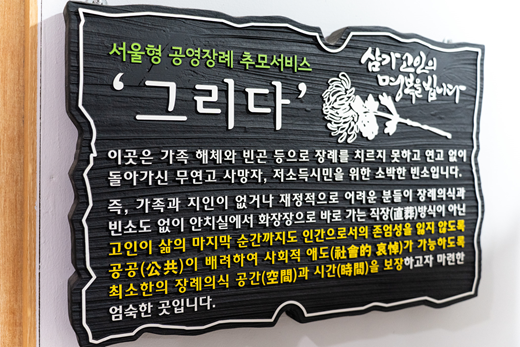 서울형 공영장례 추모서비스
‘그리다’
삼가 고인의
명복을 빕니다
이곳은 가족 해체와 빈곤 등으로 장례를 치르지 못하고 연고 없이
돌아가신 무연고 사망자, 저소득시민을 위한 소박한 빈소입니다.
즉, 가족과 지인이 없거나 재정적으로 어려운 분들이 장례의식과
빈소도 없이 안치실에서 화장장으로 바로 가는 직장(直葬)방식이 아닌
고인이 삶의 마지막 순간까지도 인간으로서의 존엄성을 잃지 않도록
공공(公共)이 배려하여 사회적 애도(社會的 哀悼)가 가능하도록
최소한의 장례의식 공간(空間)과 시간(時間)을 보장하고자 마련한
엄숙한 곳입니다.